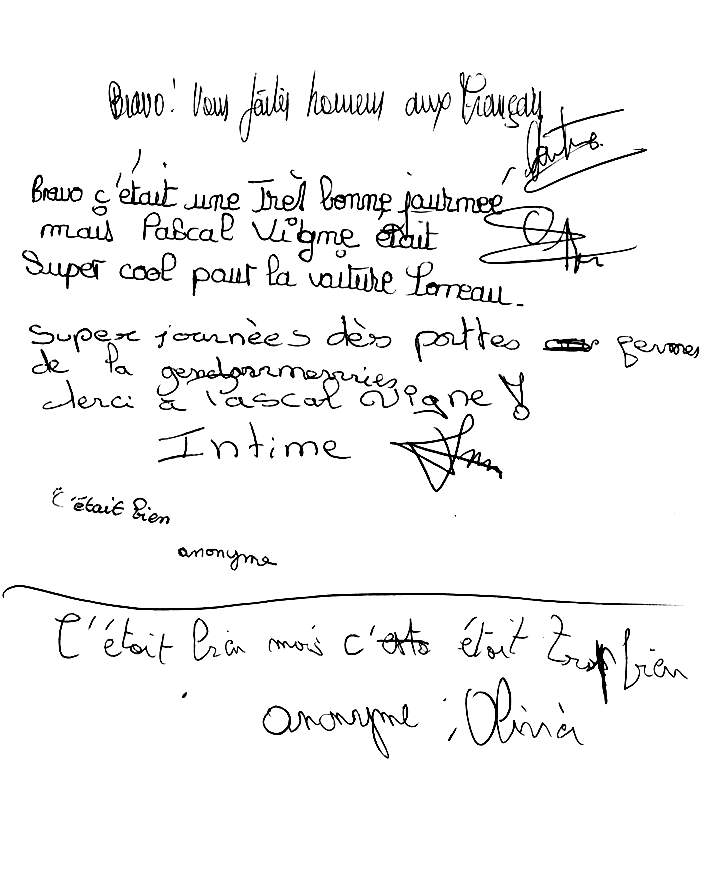 Bravo! Vous faites honneur aux Français
Bravo ç'était une Très bonne journée
mais Pascal Vigne était
Super cool pour la voiture
Super journèes dès portes fermes
de la gendarmerries
Merci à Pascal Vigne !
Intime
C'était bien
anonyme
C'était bien mais c' était trop bien
anonyme ; Olivia